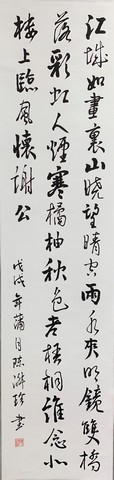 江城如畫裏山曉望晴空雨水夾明鏡雙橋
落彩虹人煙寒橘柚秋色老梧桐誰念北
樓上臨風懷謝公
戊戌年蒲月陈洪珍書